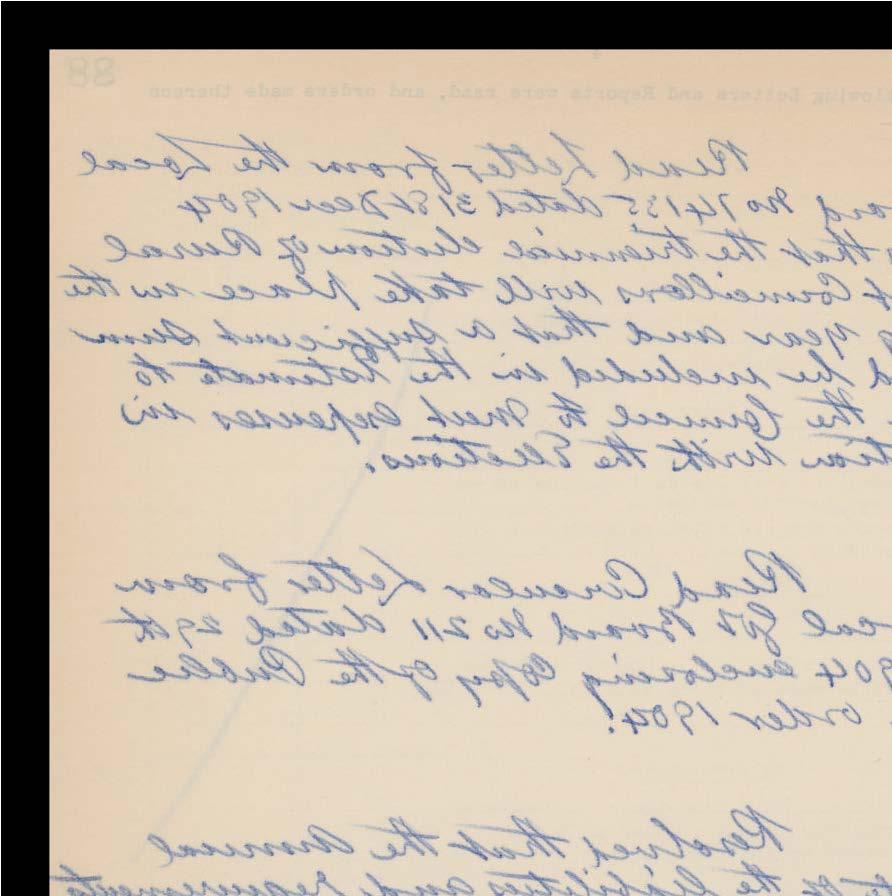 88
llowing Letters and Reports were read, and orders made thereon
Read Letter from the Local
oard No 74135 dated 31st Decr 1904
that the triennial election of Rural
t Councillors will take place in the
s year and that a sufficient sum
d be included in the Estimate to
the Council to meet expenses in
tion with the Elections.
Read Circular Letter from
cal Govt Board No 211 dated 29th
904 enclosing Copy of the Public
order 1904.
Resolved that the Annual
the liabilities and requirements